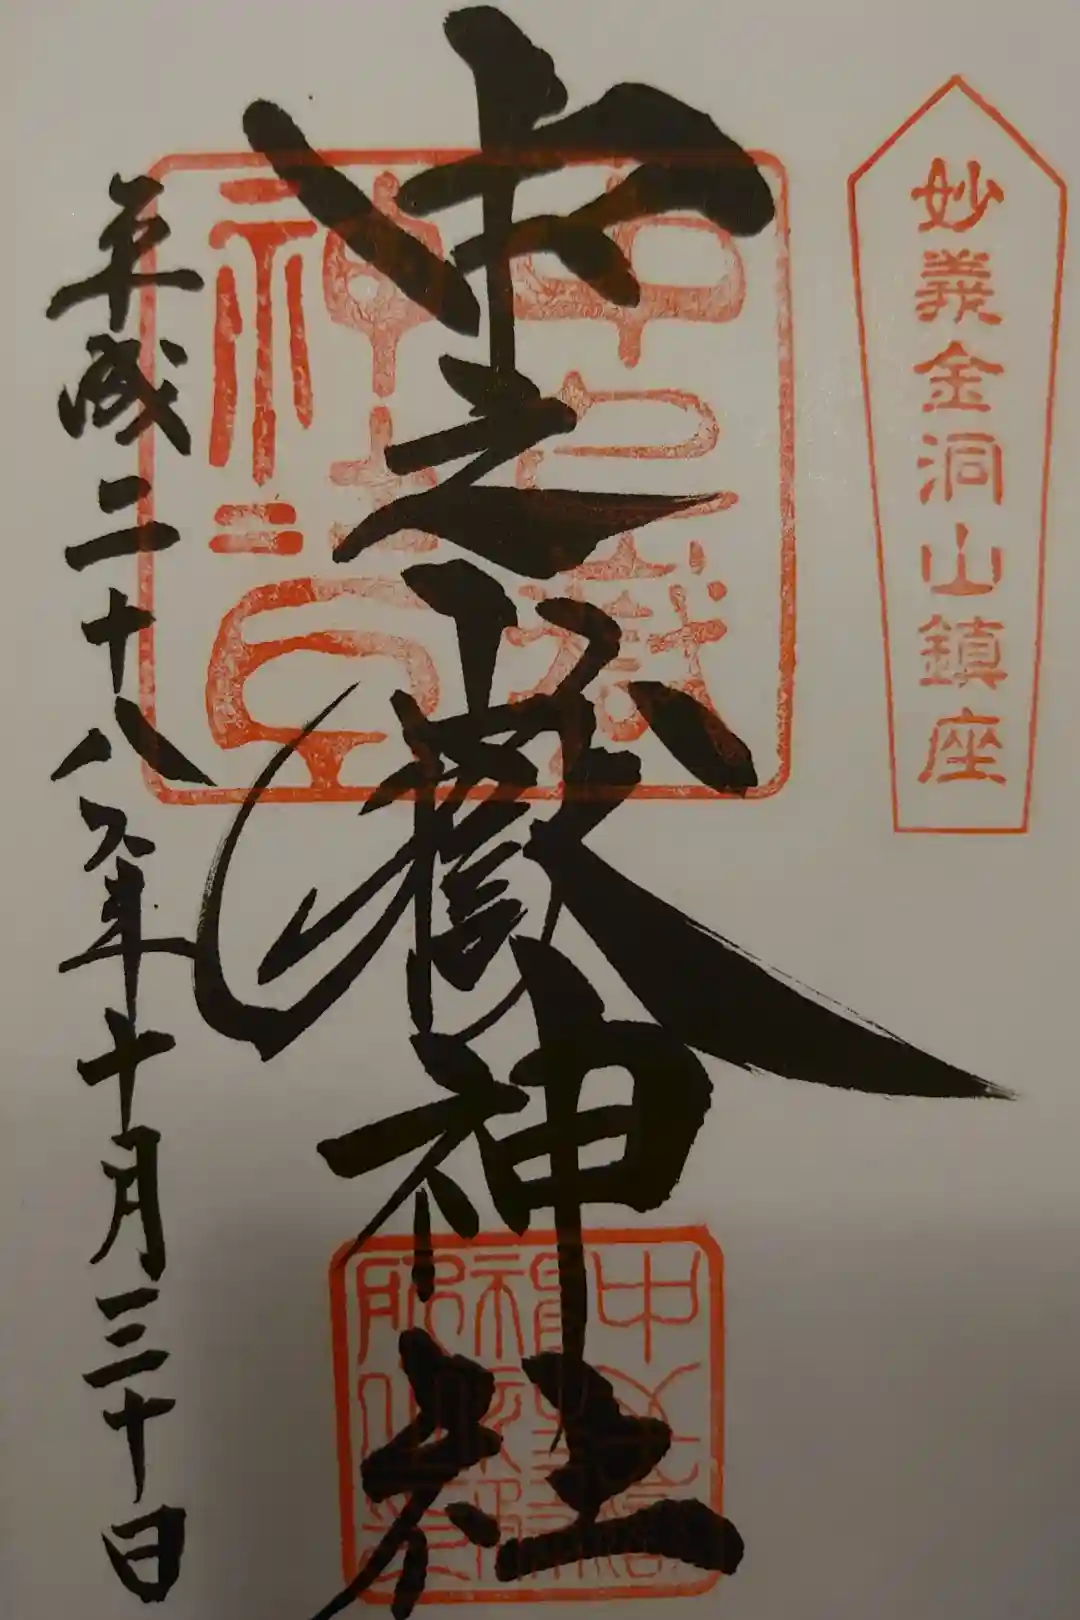 妙義金洞山鎮座
中之嶽神社
平成二十八年十月三十日